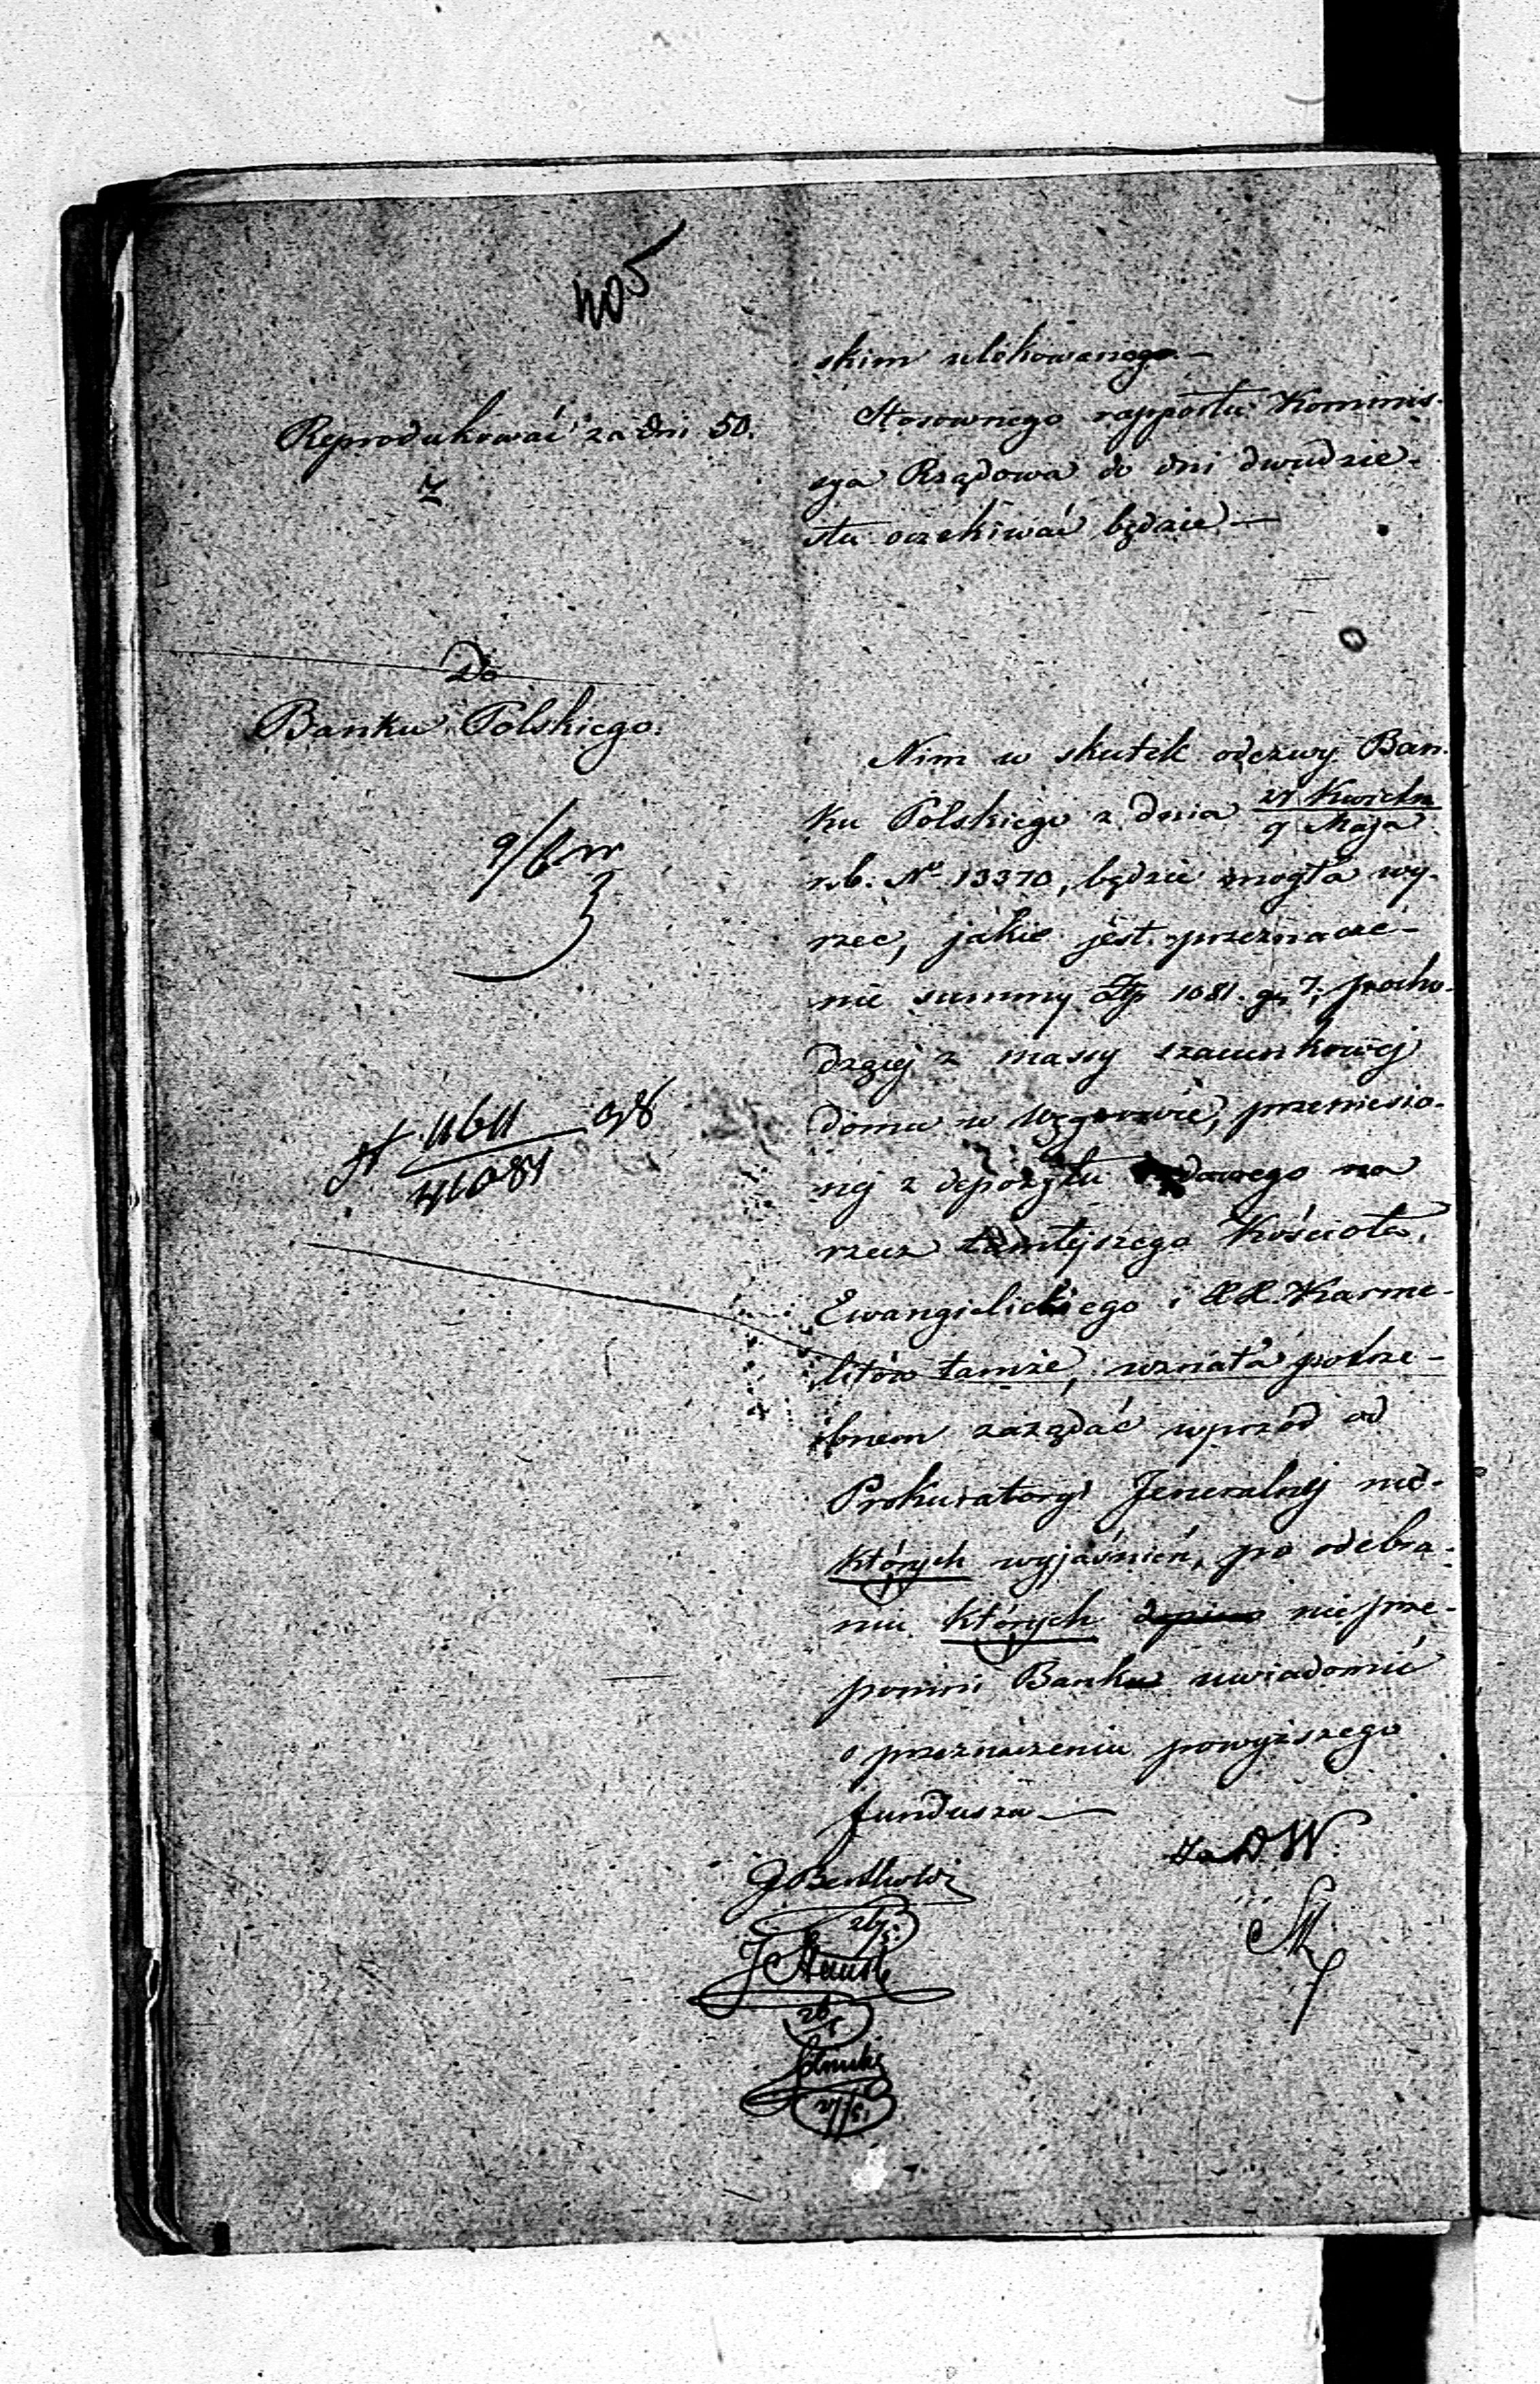 405
Reprodukować za dni 50.
skim ulokowanego.—
Stosownego rapportu Kommis-
sya Rządowa do dni dwudzie-
stu oczekiwać będzie—
Do
Banku Polskiego.
Nim w skutek odezwy Ban-
ku Polskiego z dnia 27 Kwietn / 9 Maja
r.b. No 13370, będzie mogła wy-
rzec, jakie jest przeznacze-
nie summy Złp 1081. gr 7, pocho-
dzącej z massy szacunkowej
domu w Węgrowie, przeniesio-
nej z depozytu na
rzecz tamtejszego Kościoła
Ewangielickiego i XX. Karme-
litów tamże, uznała potrze-
bnem zażądać wprzód od
Prokuratoryi Jeneralnej nie-
których wyjaśnień, po odebra-
niu których dopiero nieprze-
pomni Banku uwiadomić
o przeznaczeniu powyższego
funduszu—
Za D. W.